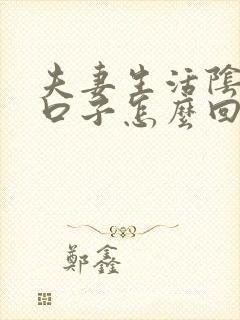 夫妻生活陰
口子怎麼回
鄭鑫